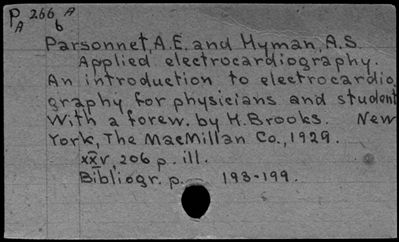 P 266 A
A b
Parsonnet, A.E. and Hyman, A.S.
Applied electrocardiography.
An introduction to electrocardio
graphy for physicians and student
With a forew. by H. Brooks. New
York, The MacMillan Co., 1929.
xxv, 206 p. ill.
Bibliogr. p. 193-199.